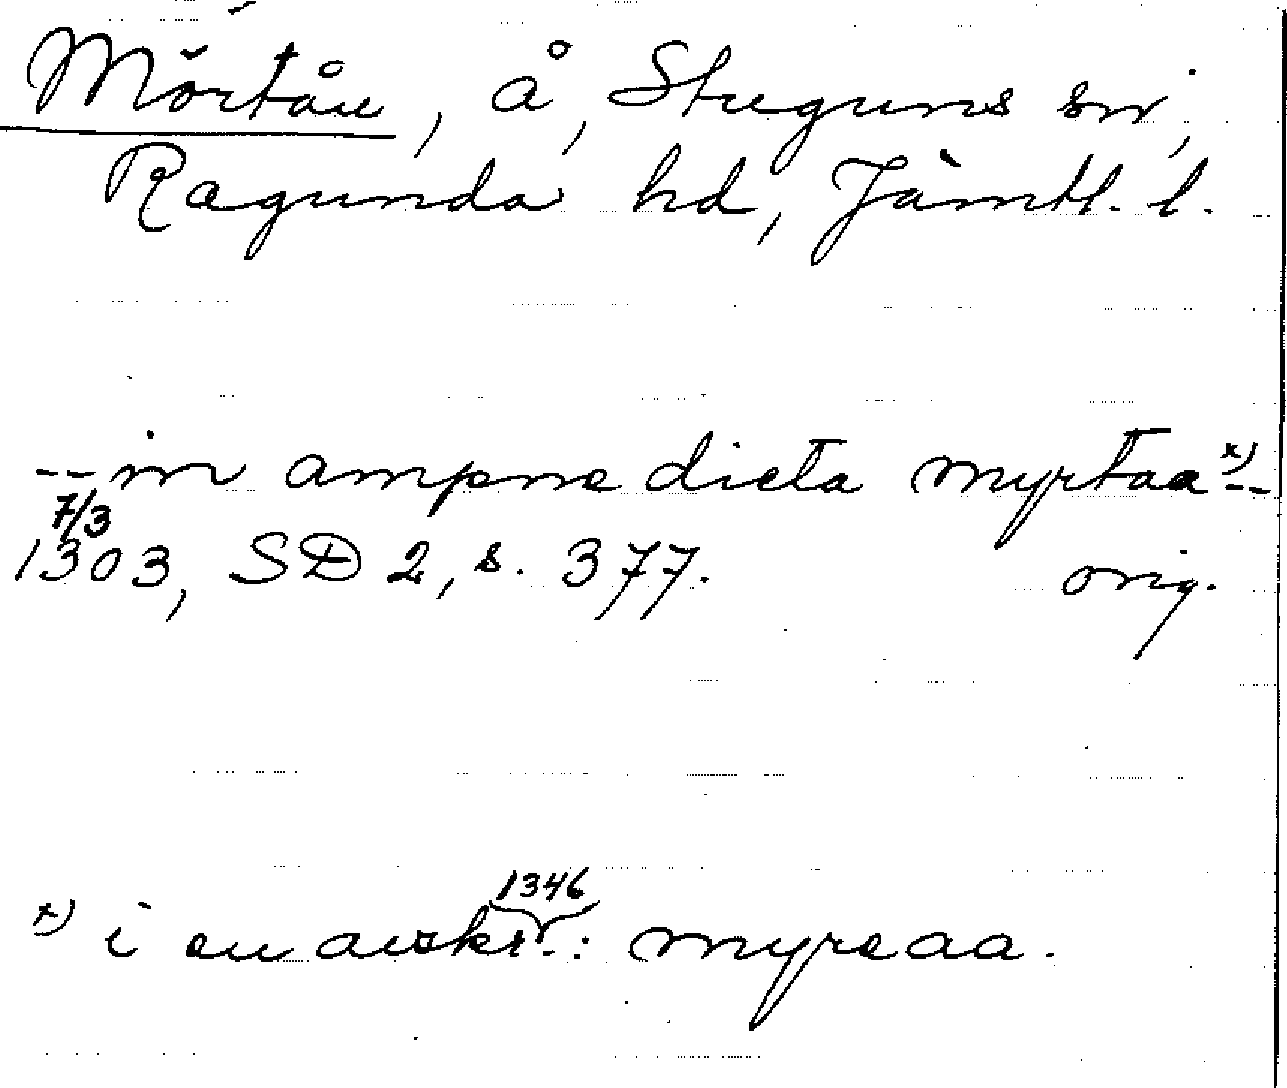 Mörtån, å, Stuguns sn,
Ragunda hd, Jämtl. l.
-- in ampne dicta myrtaa x) --
7/3
1303, SD 2, s. 377. orig.
1346
x) i en avskr.: myrcaa.